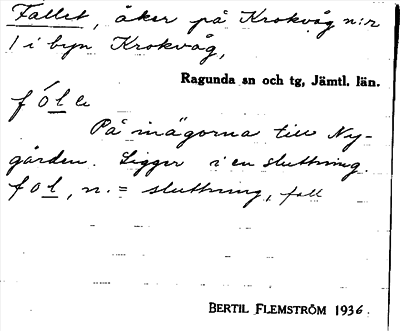 Fallet, åker på Krokvåg n:r
1 i byn Krokvåg,
Ragunda sn och tg, Jämtl. län.
fóle
På inägorna till Ny-
gården. Ligger i en sluttning.
fol, n. = sluttning, fall
BERTIL FLEMSTRÖM 1936.